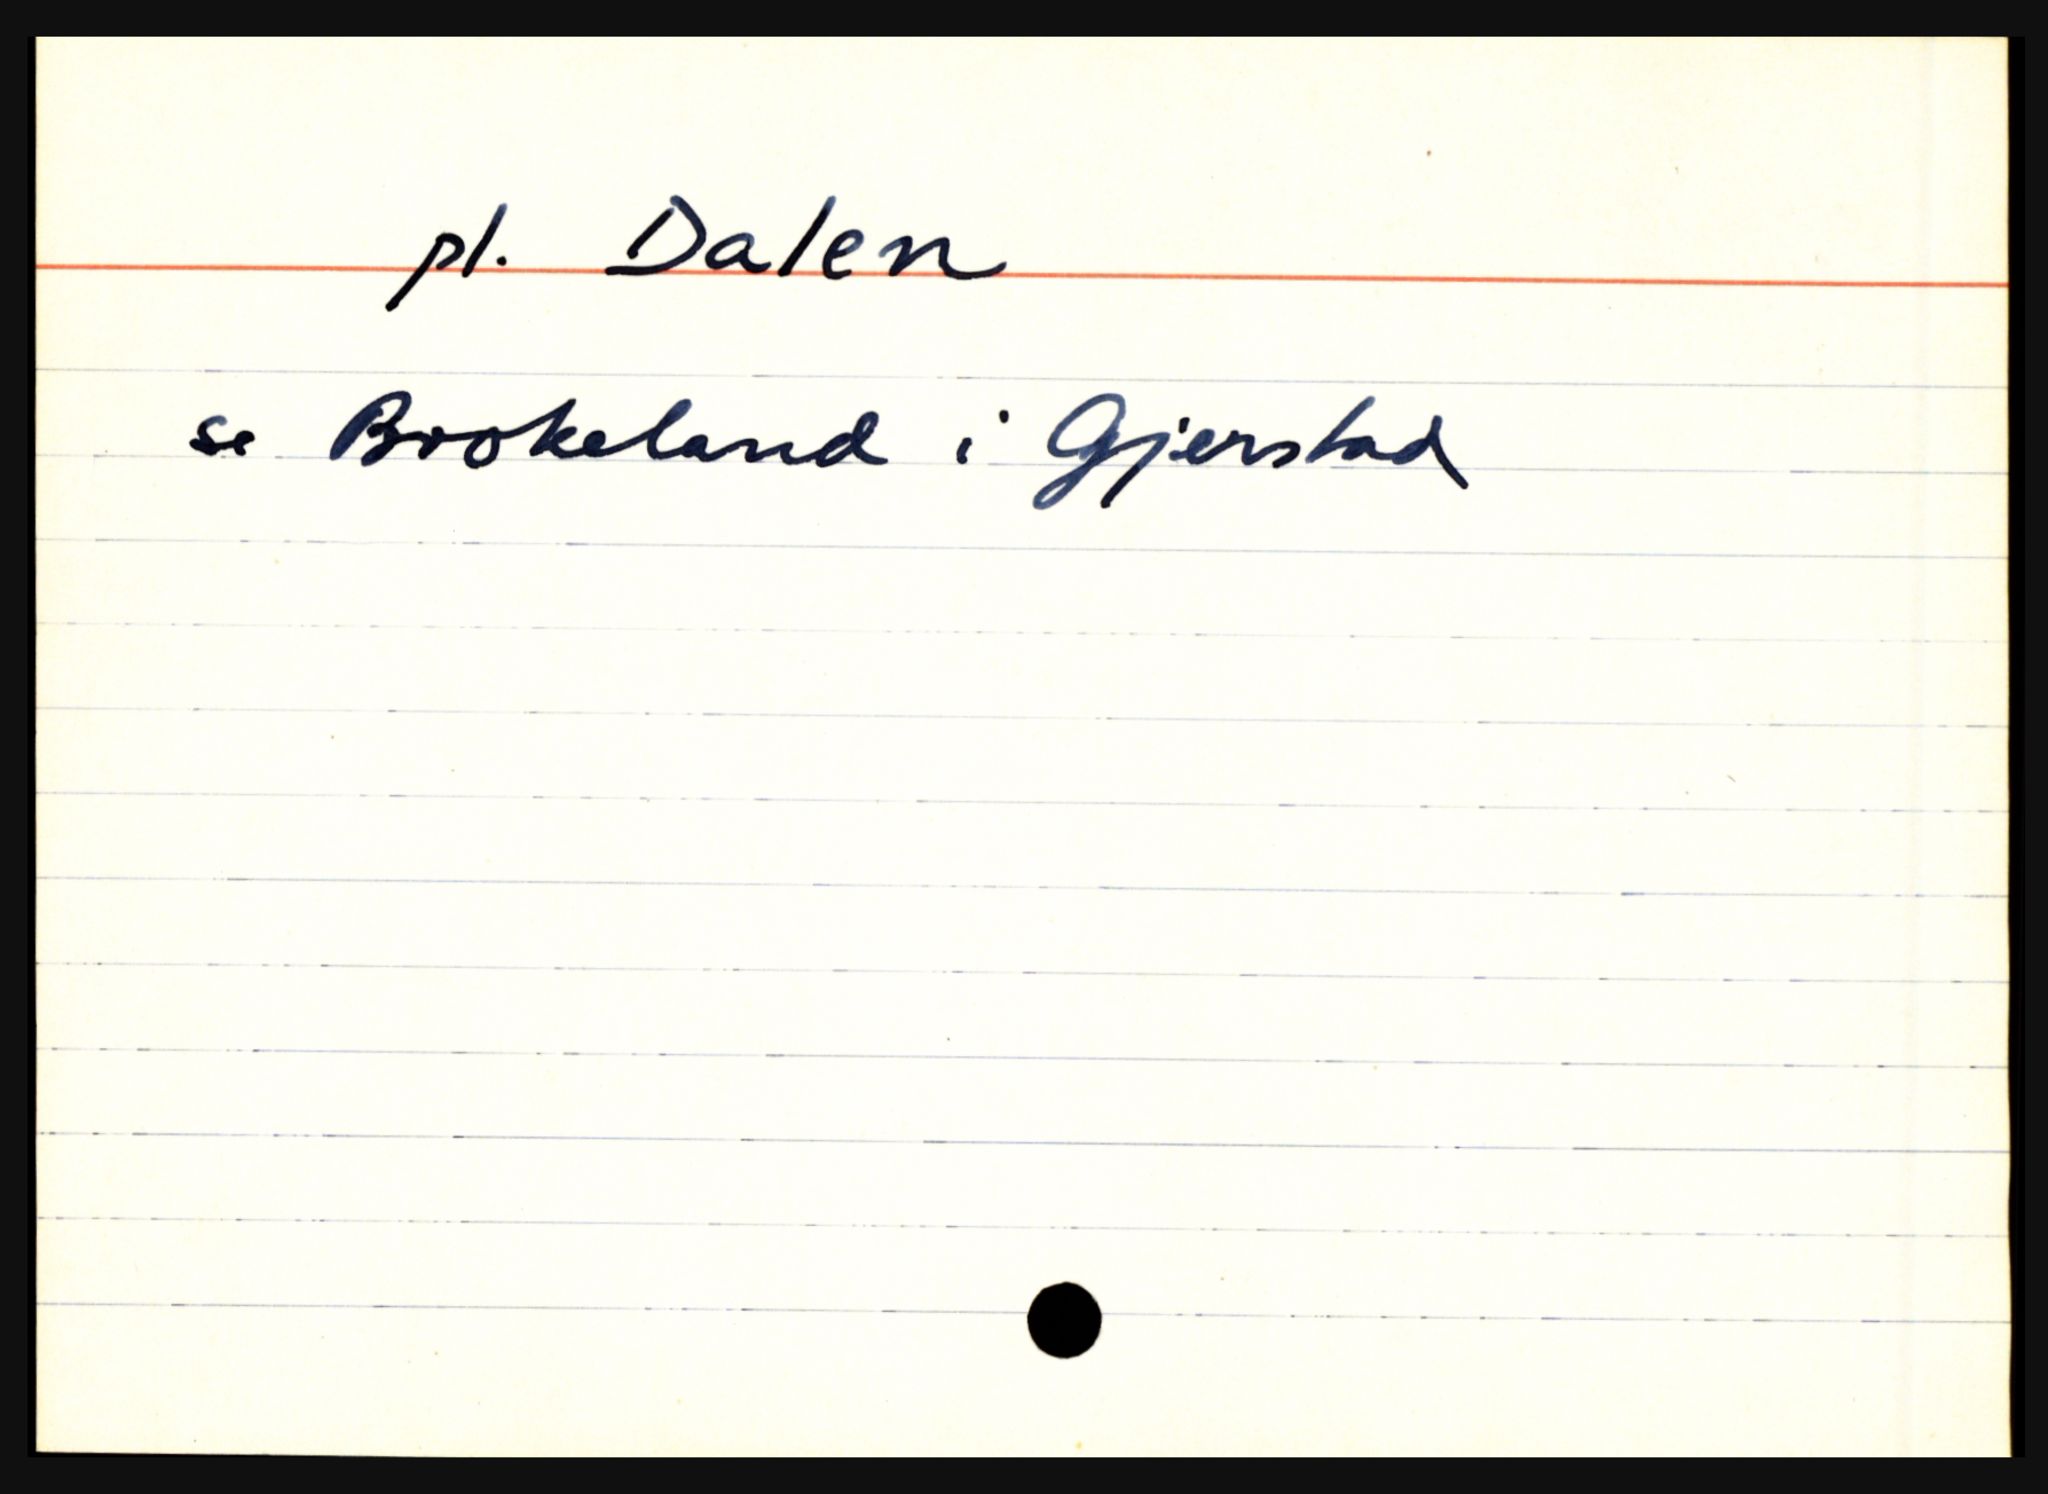 pl. Dalen
se Brokeland i Gjerstad